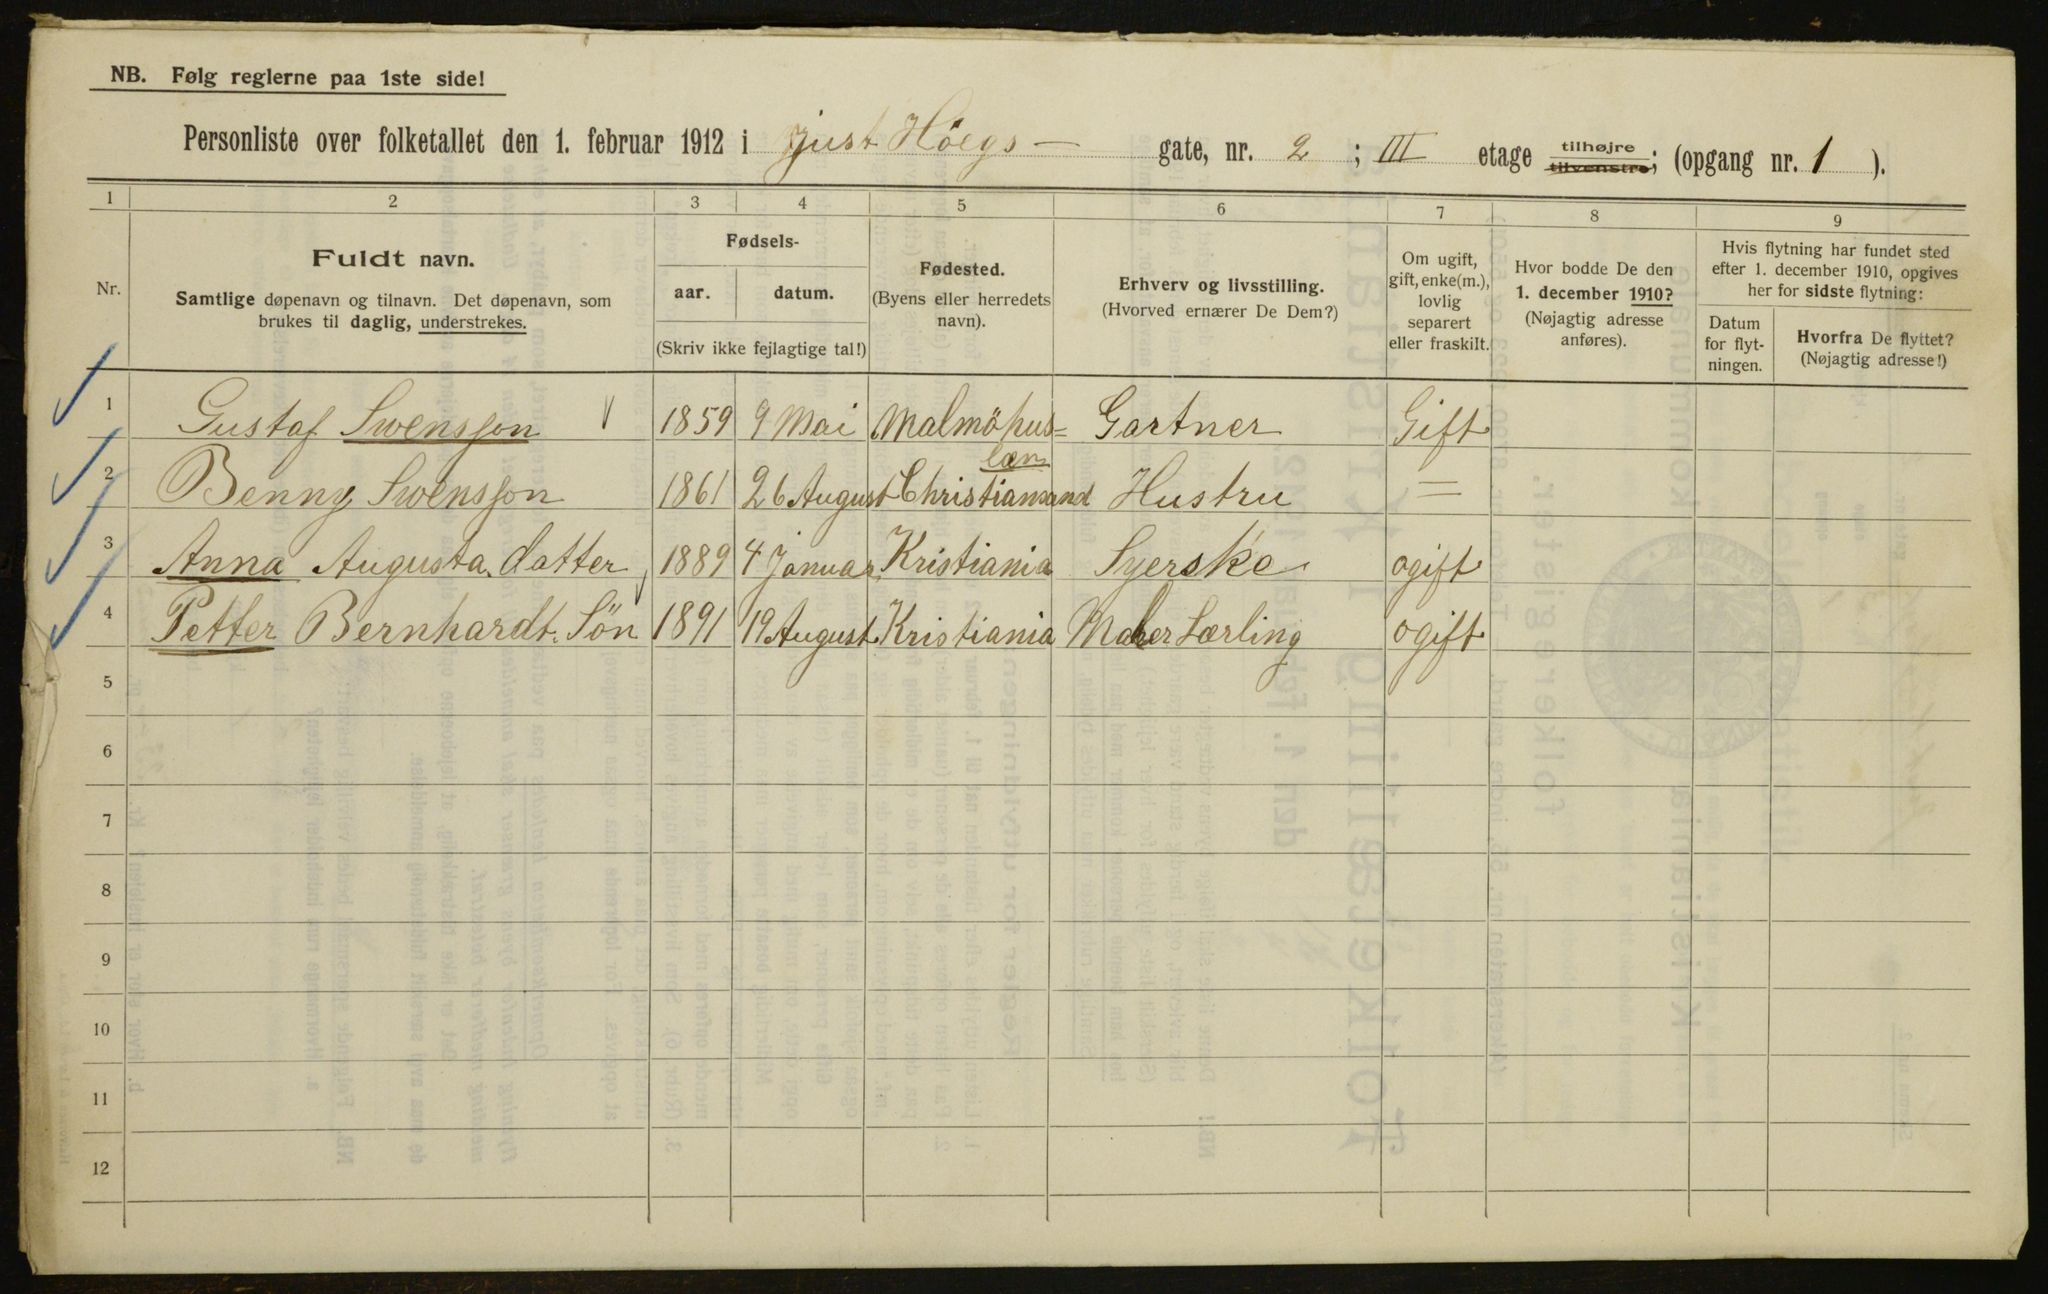 NB. Følg reglerne paa 1ste side!
Personliste over folketallet den 1. februar 1912 i Just Höegs — gate, nr. 2 ; III etage tilhøjre tilvenstre; (opgang nr. 1 ).
1 2 3 4 5 6 7 8 9
Nr.
Fuldt navn.
Samtlige døpenavn og tilnavn. Det døpenavn, som
brukes til daglig, understrekes.
Fødsels-
aar. datum.
(Skriv ikke fejlagtige tal!)
Fødested.
(Byens eller herredets
navn).
Erhverv og livsstilling.
(Hvorved ernærer De Dem?)
Om ugift,
gift, enke(m.),
lovlig
separert
eller fraskilt.
Hvor bodde De den
1. december 1910?
(Nøjagtig adresse
anføres).
Hvis flytning har fundet sted
efter 1. december 1910, opgives
her for sidste flytning:
Datum
for flyt-
ningen.
Hvorfra De flyttet?
(Nøjagtig adresse!)
1 Gustaf Swensson 1859 9 Mai Malmöhus= Gartner Gift
læn
2 Benny Swensson 1861 26 August Christiansand Hustru =
3 Anna Augusta. datter 1889 4 Januar Kristiania Syerske ogift
4 Petter Bernhardt. Sön 1891 19 August Kristiania Maler Lærling ogift
5
6
7
8
9
10
11
12